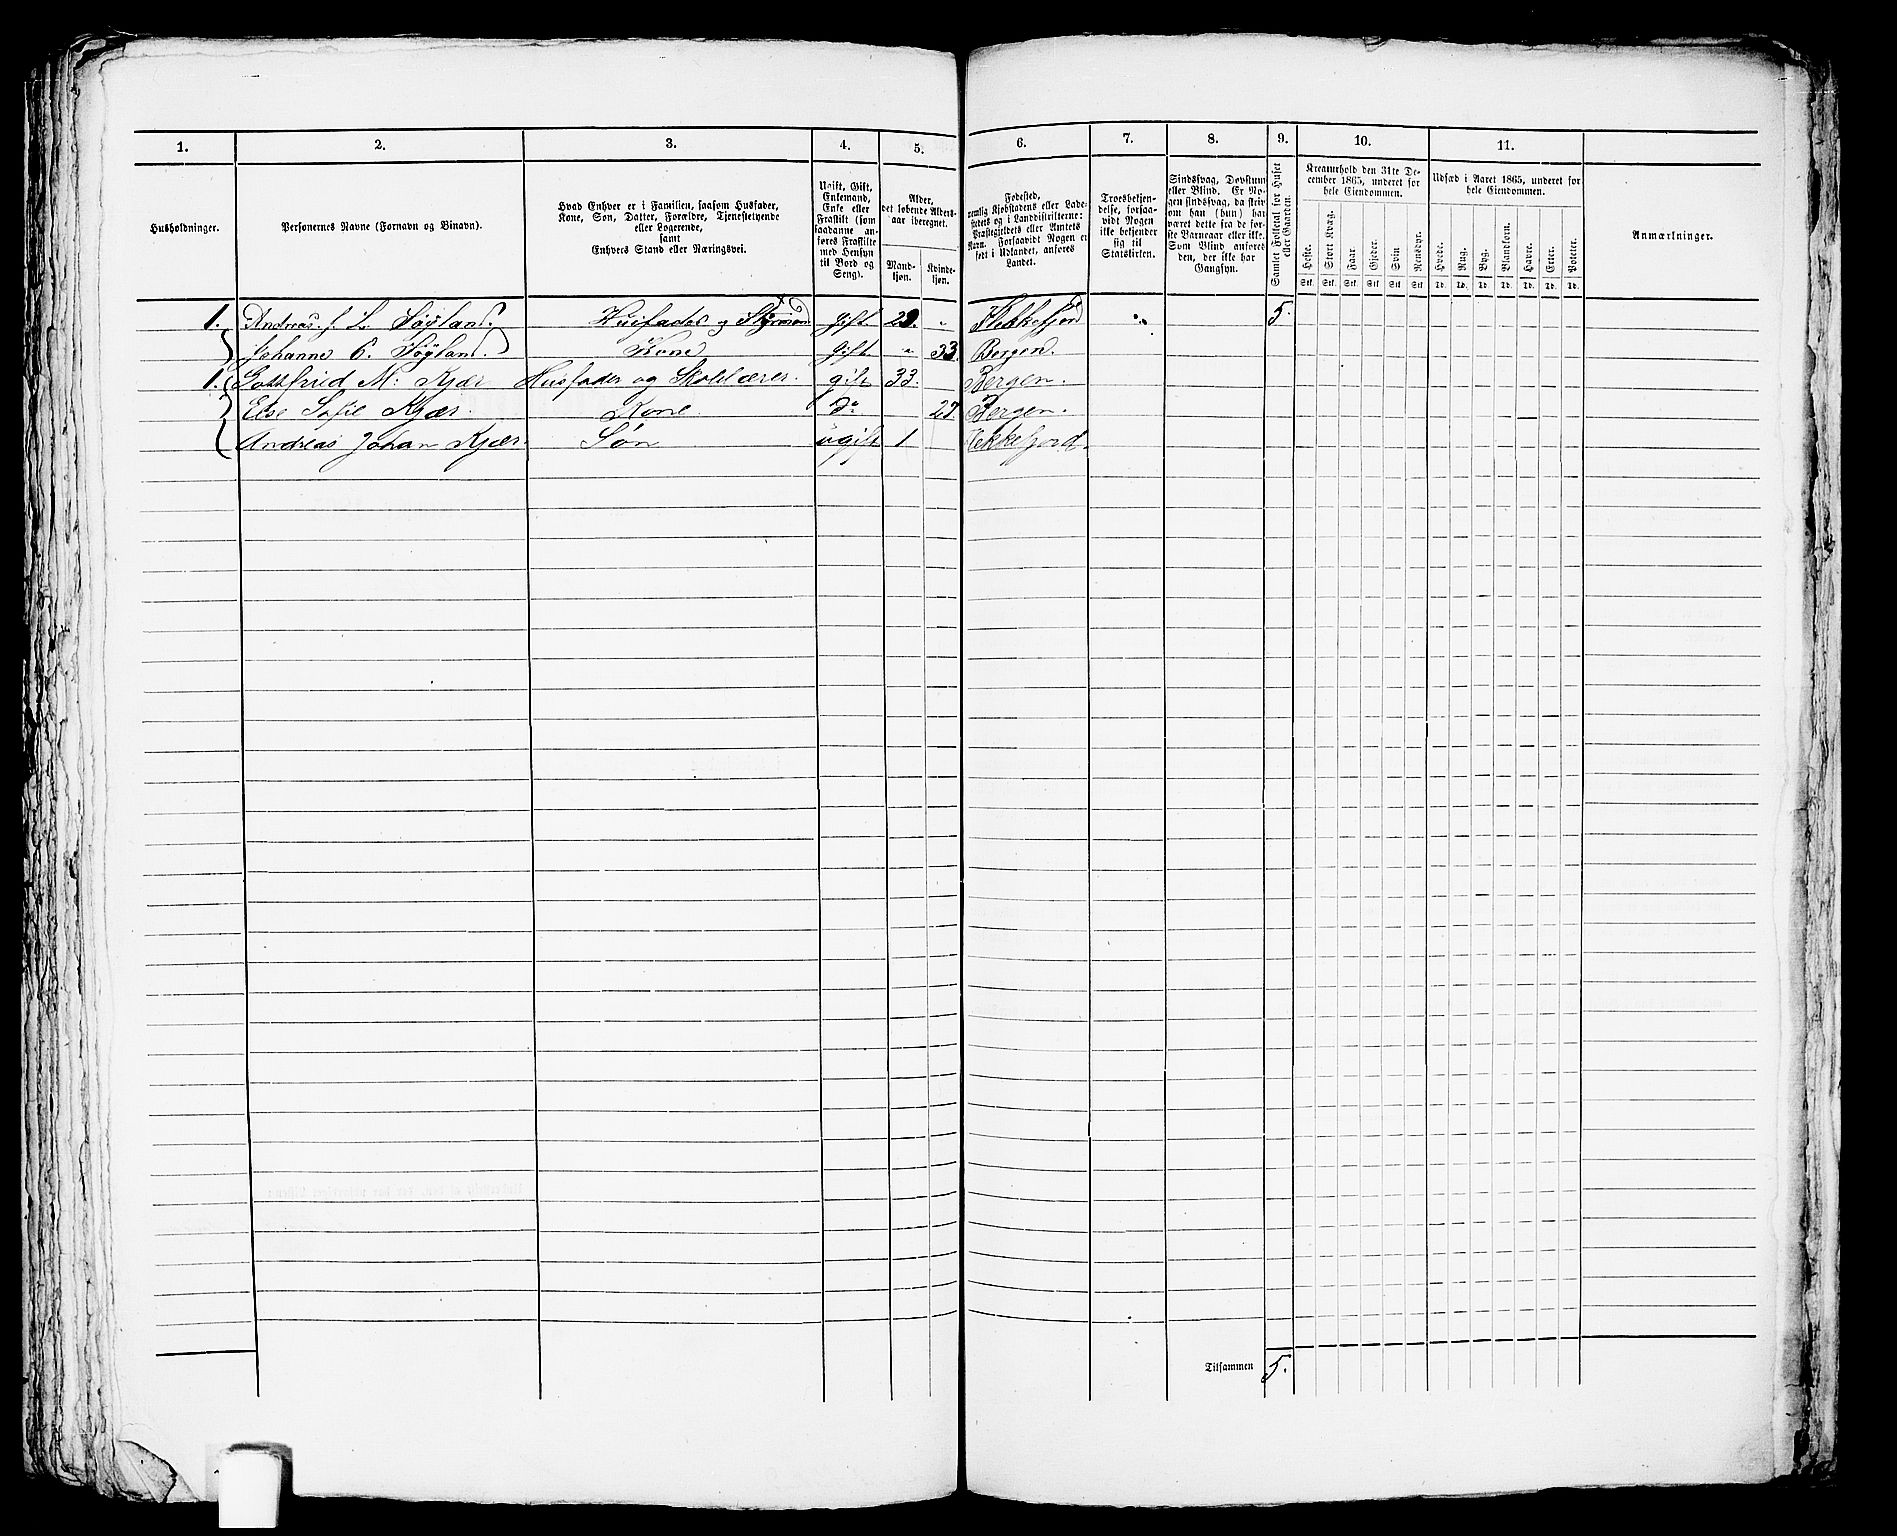 1. 2. 3. 4. 5. 6. 7. 8. 9. 10. 11.
Husholdninger.
Personernes Navne (Fornavn og Binavn).
Hvad Enhver er i Familien, saasom Husfader,
Kone, Søn, Datter, Forældre, Tjenestetyende
eller Logerende,
samt
Enhvers Stand eller Næringsvei.
Ugift, Gift,
Enkemand,
Enke eller
Fraskilt (som
saadanne an-
føres Fraskilte
med Hensyn
til Bord og
Seng).
Alder,
det løbende Alders-
aar iberegnet.
Mand-
kjøn.
Kvinde-
kjøn.
Fødested,
nemlig Kjøbstadens eller Lade-
stedets og i Landdistrikterne:
Præstegjeldets eller Amtets
Navn. Forsaavidt Nogen er
født i Udlandet, anføres
Landet.
Troesbekjen-
delse, forsaa-
vidt Nogen
ikke bekjender
sig til
Statskirken.
Sindssvag, Døvstum
eller Blind. Er No-
gen sindssvag, da skriv
om han (hun) har
været dette fra de før-
ste Barneaar eller ikke.
Som Blind anføres
den, der ikke har
Gangsyn.
Samlet Folketal for Huset
eller Gaarden.
Kreaturhold den 31te De-
cember 1865, underet for
hele Eiendommen.
Heste. Stort Kvæg. Faar. Gjeder. Svin Rensdyr.
Stk. Stk. Stk. Stk. Stk Stk
Udsæd i Aaret 1865, underet for
hele Eiendommen.
Hvede. Rug. Byg. Blandkorn. Havre. Erter. Poteter.
Td. Td. Td. Td. Td. Td. Td.
Anmærkninger.
1. Andreas J. L. Søyland. Husfader og Styrmand gift 29. " Flekkefjord 5.
Johanne C. Søyland. Kone gift " 33. Bergen.
1. Gottfried M: Kjær Husfader og Skolelærer. gift 33. Bergen.
Else Sofie Kjær. Kone do 27. Bergen.
Andreas Johan Kjær. Søn ugift 1 Flekkefjord.
Tilsammen 5.